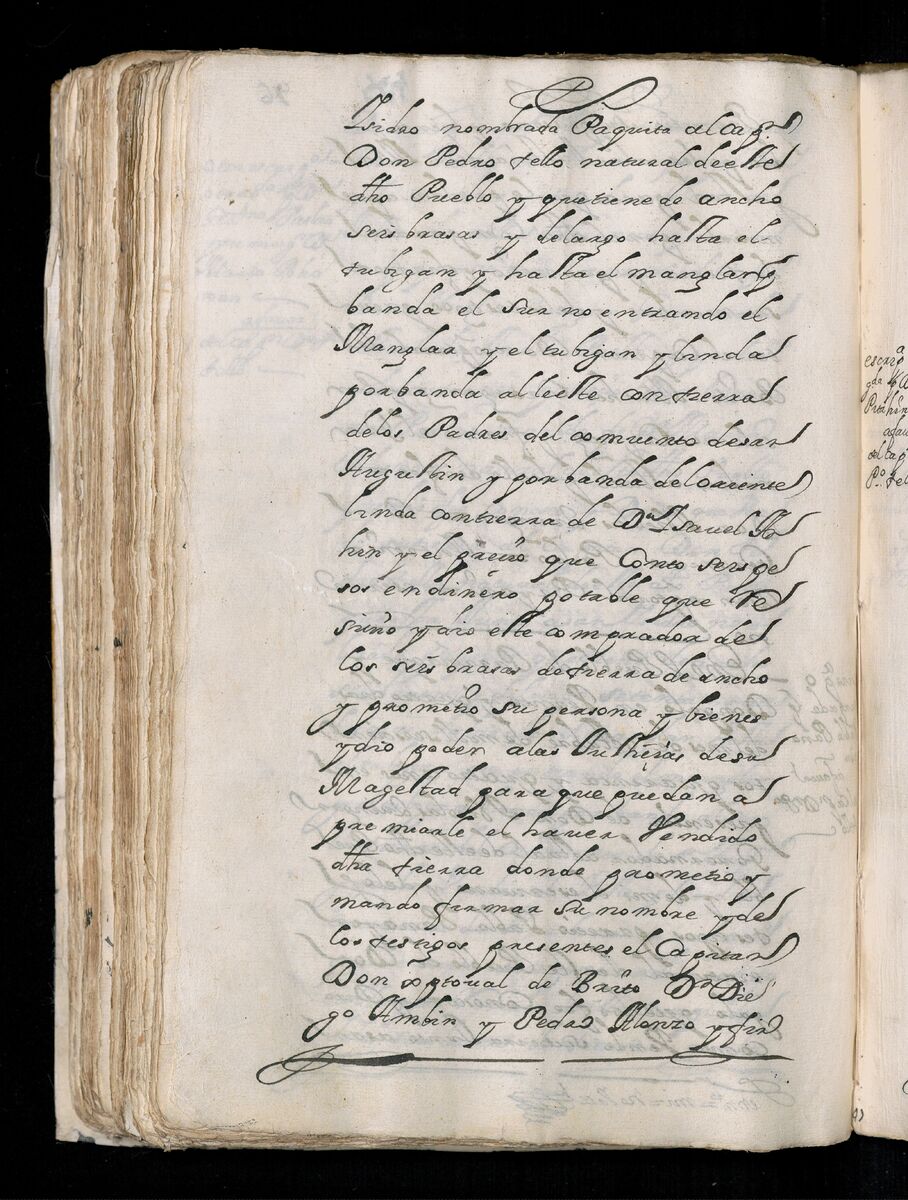 Isidro nombrada Paquita al Capn
Don Pedro tello natural deeste
dho Pueblo y quetiene de ancho
seis brasas y delargo hasta el
tubigan y hasta el manglar y
banda el sur no entrando el
Manglar y el tubigan y linda
porbanda al leste con tierra
delos Padres del comvento desan
Augustin y porbanda deloriente
linda contierra de Da Isavel
hin y el precio que Conto seis pe
sos endinero potable que Re
sivio y dio este comprador de
los seis brasas detierra de ancho
y prometio su persona y bienes
y dio poder alas Justicias desu
Magestad para que puedan a
premiarle el haver Vendido
dha tierra donde prometio y
mando firmar su nombre y de
los testigos presentes el Capitan
Don xptoual de Brito Dn Die
go Ambin y Pedro Alonzo y fir
escrip
a
del Cap
Po. tel